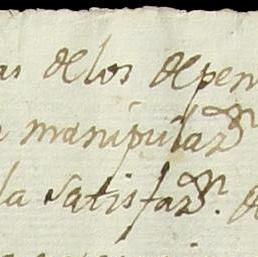 as de los depen
manipulaz.on
la satisfaz.on. d